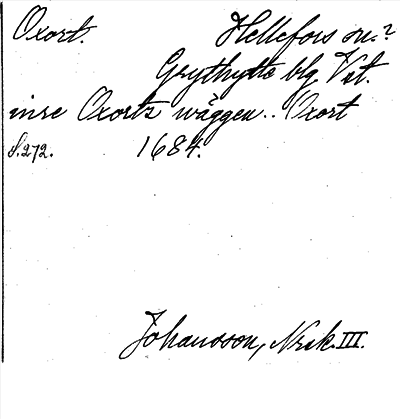 Oxort. Hellefors sn.?
Grythytte blg Vstl.
inre Oxorts wäggen.. Oxort
S.272. 1684.
Johansson, Nrik. III.